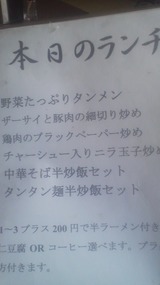 本日のランチ
野菜たっぷりタンメン
ザーサイと豚肉の細切り炒め
鶏肉のブラックペーパー炒め
チャーシュー入りニラ玉子炒め
中華そば半炒飯セット
タンタン麺半炒飯セット
1~3プラス200円で半ラーメン付き
仁豆腐 OR コーヒー選べます。プラ
方付きます。